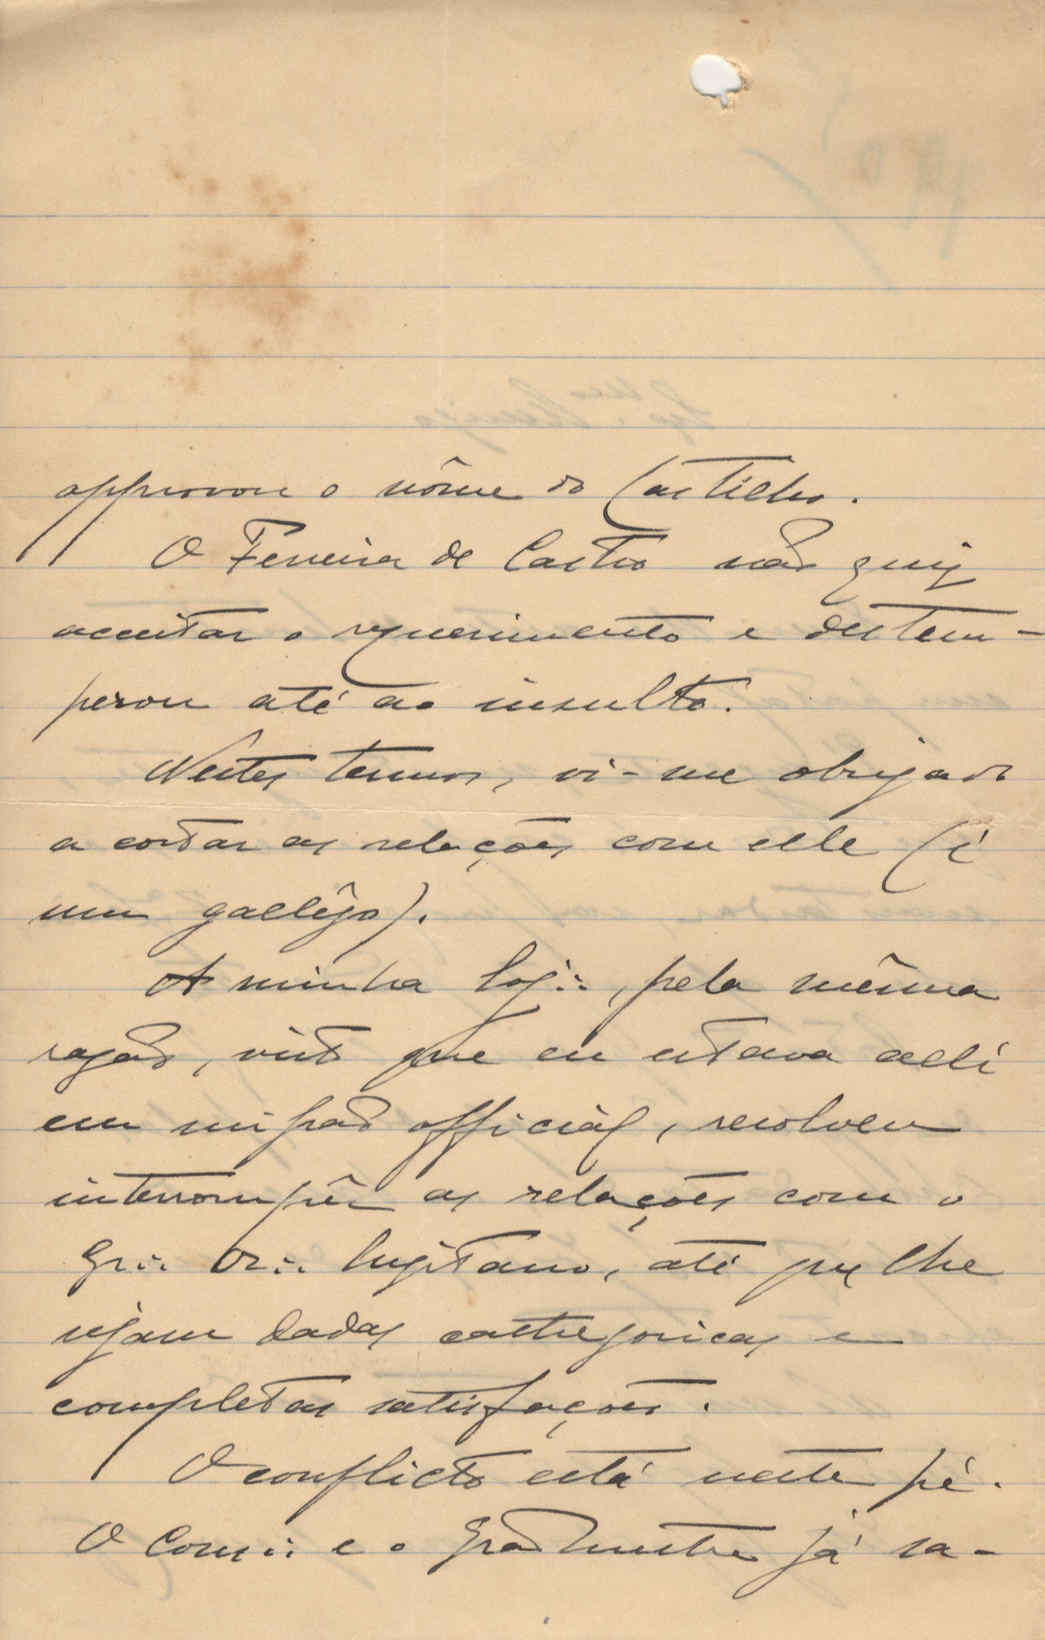 approvou o nôme do Castilho.
O Ferreira de Castro não quiz
acceitar o requerimento e destem-
perou até ao insulto.
Nestes termos, vi-me obrigado
a cortar as relações com elle (é
um gallêgo).
A minha Loj∴, pela mêsma
razão, visto que eu estava alli
em missão official, resolveu
interrompêr as relações com o
Gr∴ Or∴ Lusitano, até que lhe
sejam dadas cathegoricas e
completas satisfações.
O conflicto está neste pé.
O Cons∴ e o Grão Mestre já sa-